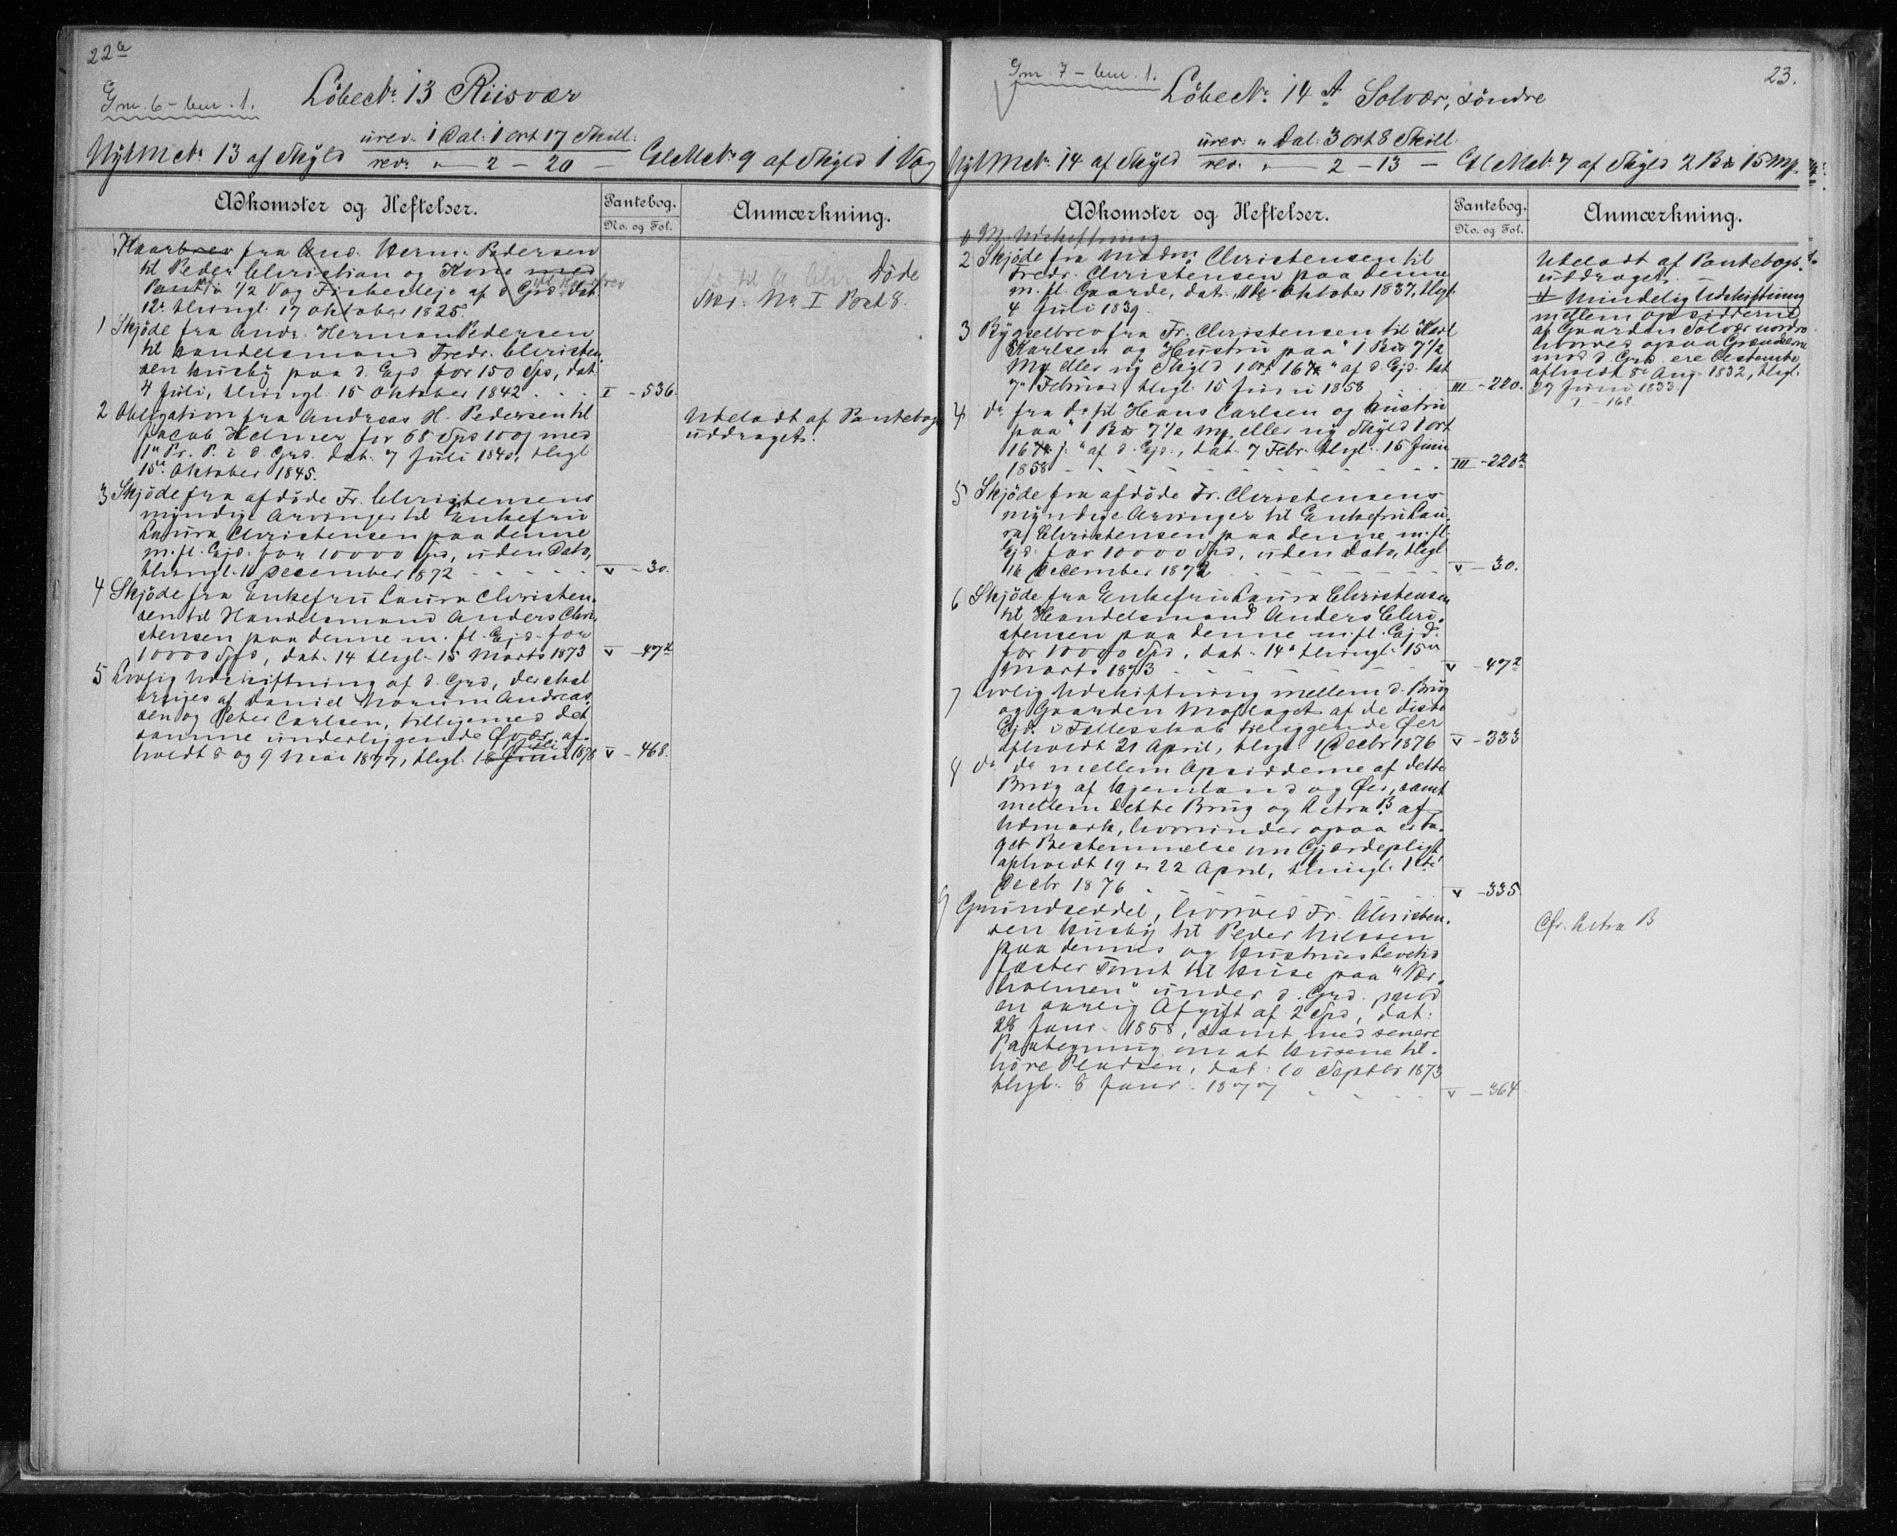 22b
Gnr. 6 - bnr. 1.
Löbe No. 13 Riisvær
Nyt M. No. 13 af Skyld urev. 1 Dal. 1 ort 17 Skill. Gl. M. No. 9 af Skyld 1 Vog
rev. " — 2 — 20 —
Adkomster og Heftelser.
Pantebog.
No. og Fol.
Anmærkning.
fra And. Herm. Pedersen
til Peder Christian og Kone med
Pant i 1/2 Vog Fiskeleje af d. Grd. dat.
12te thingl. 17 Oktober 1825.
Døde
Skr. No. I Post 8.
1 Skjöde fra Andr. Herman Pedersen
til Handelsmand Fredr. Christen-
sen Husby paa d. Ejd. for 150 Spd, dat.
4 Juli, thingl. 15 Oktober 1842 . . . I - 536.
2 Obligation fra Andreas H. Pedersen til
Jacob Helmer for 68 Spd 100 β med
1ste Pr. P. i d. Grd. dat. 7 Juli 1840, thgl.
15de Oktober 1845.
Udeladt af Pantebogs
uddraget.
3 Skjöde fra afdöde Fr. Christensens
myndige Arvinger til Enkefru
Laura Christensen paa denne
m. fl. Ejd. for 10000 Spd, uden Dato,
thingl. 16 December 1872 . . . . . V - 30.
4 Skjöde fra Enkefru Laura Christen-
sen til Handelsmand Anders Chri-
stensen paa denne m. fl. Ejd. for
10000 Spd, dat. 14 thgl. 15 Marts 1873 V - 472
5 Lovlig Udskiftning af d. Grd, der skal
bruges af Daniel Norum Andreas-
sen og Peter Carlsen, tilligemed det
samme underliggende Øvær, af-
holdt 8 og 9 Mai 1877, thgl. 18 Juni 1878 V - 468.
23.
Gnr. 7 - bnr. 1.
Löbe No. 14 A Solvær, söndre
Nyt M. No. 14 af Skyld urev. " Dal. 3 ort 8 Skill. Gl. M. No. 7 af Skyld 2 B 15 Mp.
rev. " — 2 — 13 —
Adkomster og Heftelser.
Pantebog.
No. og Fol.
Anmærkning.
M. Udskiftning
2 Skjöde fra Madm. Christensen til
Fredr. Christensen paa denne
m. fl. Gaarde, dat. 11te Oktober 1837, thgl.
4 Juli 1839.
Udeladt af Pantebogs-
uddraget.
Mindelig Udskiftning
mellem opsidderne
af Gaarden Solvær nordre
hvorved ogsaa Grændserne
mod d. Grd. ere bestemte,
afholdt 8de Aug. 1832, thgl.
29 Juni 1833.
I - 168.
3 Bygselbrev fra Fr. Christensen til Karl
Karlsen og Hustru paa 1 B 7 1/2
Mp eller ny Skyld 1 ort 16 " af d. Ejd. dat.
7de Februar, thgl. 15 Juni 1858 . . III - 220.
4 do fra do til Hans Carlsen og Hustru
paa 1 B 7 1/2 Mp eller ny Skyld 1 ort
16 " af d. Ejd., dat. 7 Febr. thgl. 15 Juni
1858 . . . . . . . . . III - 2202
5 Skjöde fra afdöde Fr. Christensens
myndige Arvinger til Enkefru Lau-
ra Christensen paa denne m. fl.
Ejd. for 10000 Spd, uden dato, thgl.
16 December 1872 . . . . . . V - 30.
6 Skjöde fra Enkefru Laura Christensen
til Handelsmand Anders Chri-
stensen paa denne m. fl. Ejd.
for 10000 Spd, dat. 14de thingl. 15de
Marts 1873 . . . . . V - 472
7 Lovlig Udskiftning mellem d. Brug
og Gaarden Moflaget af de disse
Ejd. i Fællesskab tilliggende Øer
afholdt 21 April, thgl. 1 Decbr 1876 V - 333
8 do do mellem Opsidderne af dette
Brug af Hjemland og Øer, samt
mellem dette Brug og Litra B af
Udmark, hvorunder ogsaa er ta-
get Bestemmelse om Gjærdepligt
afholdt 19 - 22 April, thingl. 1ste
Decbr 1876 . . . . . V - 335
9 Grundseddel, hvorved Fr. Christen-
sen Husby til Peder Nilssen
paa dennes og Hustrus Levetid
fæster Tomt til Huse paa "Vær-
holmen" under d. Grd. mod
en aarlig Afgift af 2 Spd, dat.
28 Janr. 1858, samt med senere
Paategning om at Husene til-
höre Pladsen, dat. 10 Septbr 1873
thgl. 8 Janr. 1877 . . . . V - 364
Cfr. Litra B